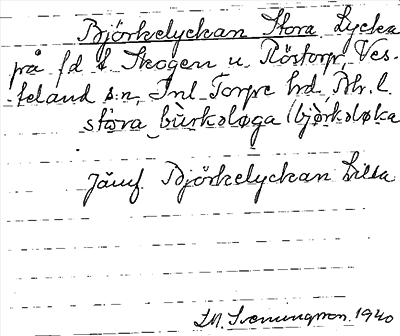 Björkelyckan Stora, Lycka
på fd t Skogen u. Röstorp, Ves-
teland s:n, Inl Torpe hd, Bh. l.
stòra bùrkəløga (bjòrkəløka
Jämf. Björkelyckan Lilla
1940